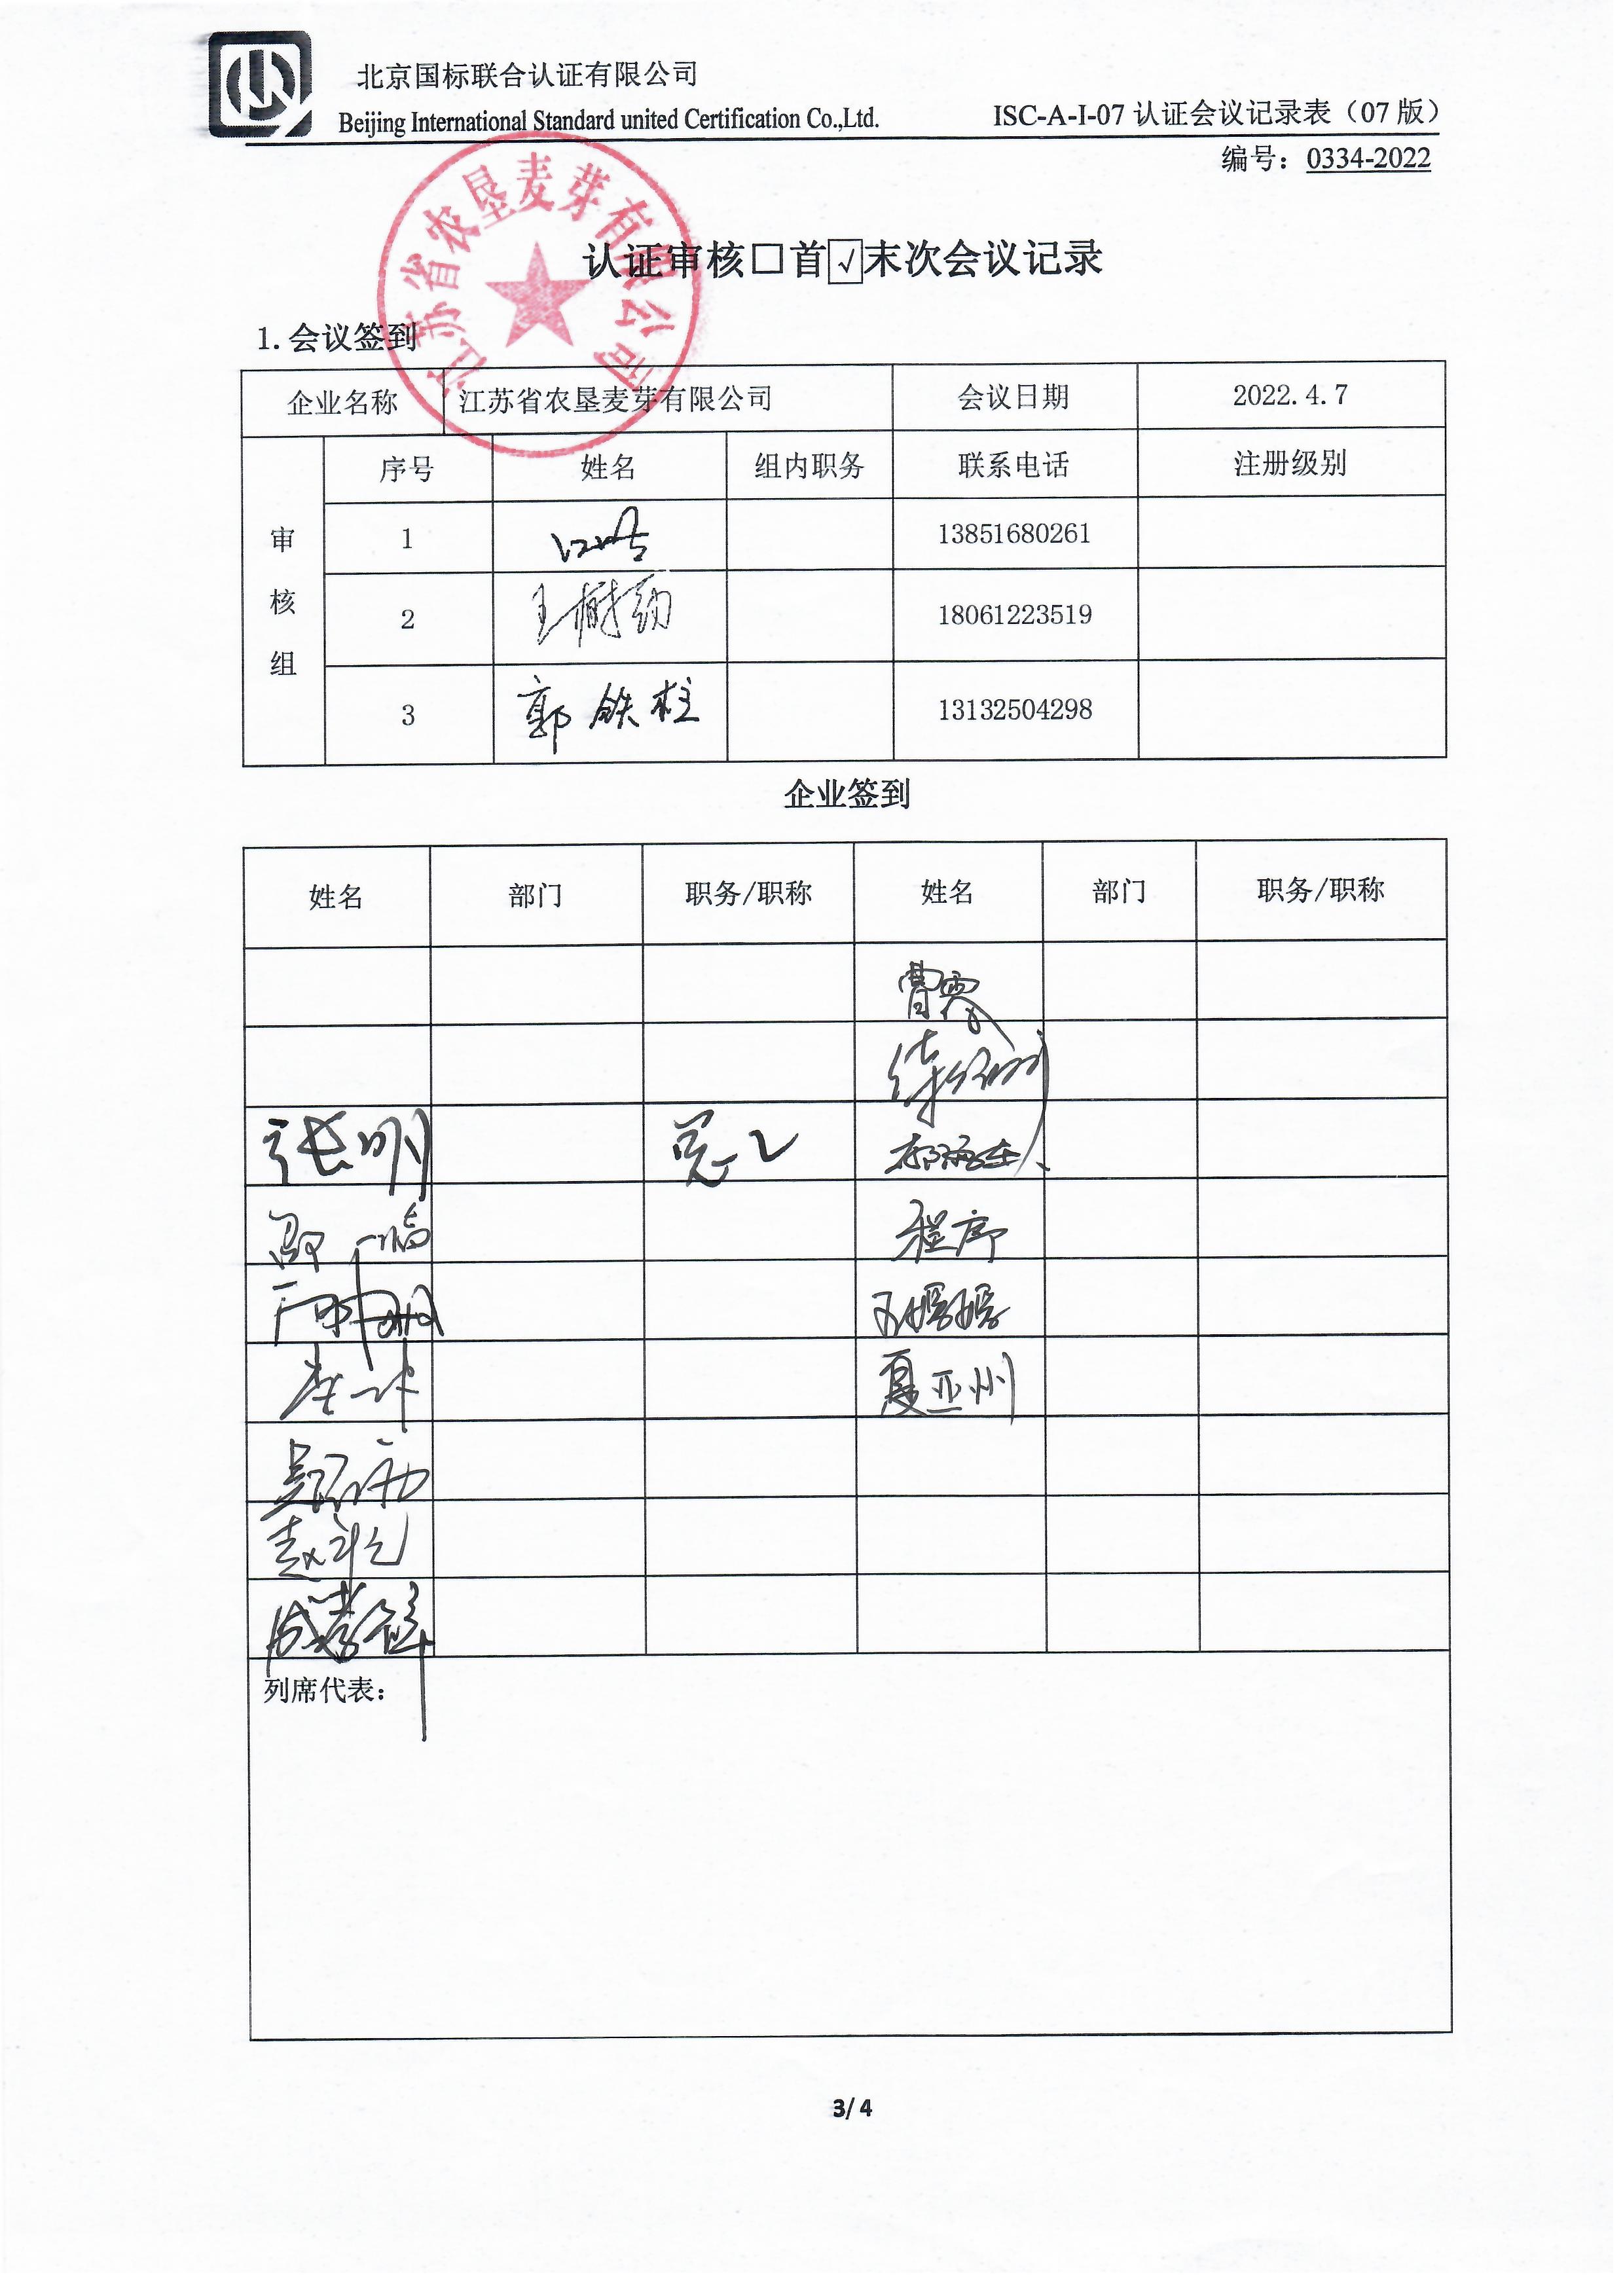 北京国标联合认证有限公司
Beijing International Standard united Certification Co.,Ltd.
ISC-A-I-07 认证会议记录表（07 版）
编号：0334-2022
江苏省农垦麦芽有限公司
认证审核□首√末次会议记录
1.会议签到
企业名称 江苏省农垦麦芽有限公司 会议日期 2022.4.7
审核组 序号 姓名 组内职务 联系电话 注册级别
1 13851680261
2 王树勃 18061223519
3 郭铁柱 13132504298
企业签到
姓名 部门 职务/职称 姓名 部门 职务/职称
曹霞
张明
程序
夏亚州
列席代表：
3/ 4